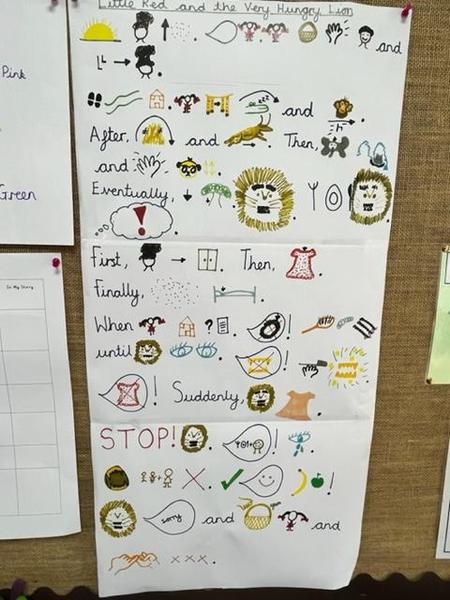 Little Red and the Very Hungry Lion
and
Pink
and
After, and Then,
and
Green
Eventually,
!
First, Then,
Finally,
In My Story
When ? !
until !
! Suddenly,
STOP! !
!
sorry and and
x x x.